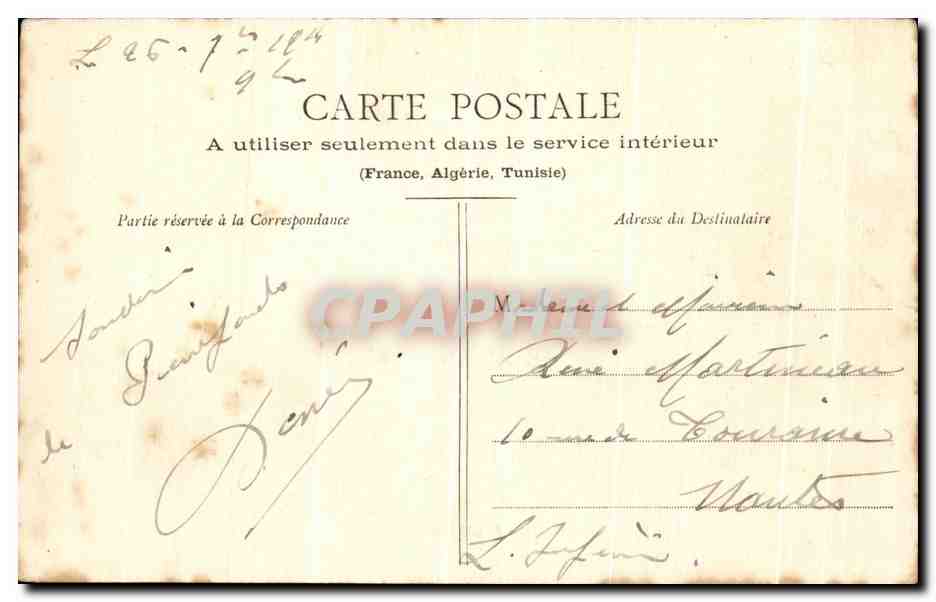 Le 26 - 7bre 19
9h
CARTE POSTALE
A utiliser seulement dans le service intérieur
(France, Algérie, Tunisie)
Partie réservée à la Correspondance
Adresse du Destinataire
CPAPHIL
Souvenir
de Pierrefonds
René
Madame et Monsieur
René Martineau
10 rue de Touraine
Nantes
L. Inférre